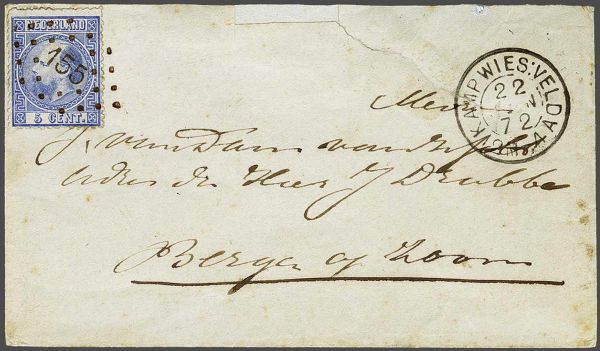 NEDERLAND
155
5 CENT.
KAMP WIES:VELD
22
72
Mevr
J. van Dam van
adres de Heer J Drabbe
Bergen op Zoom